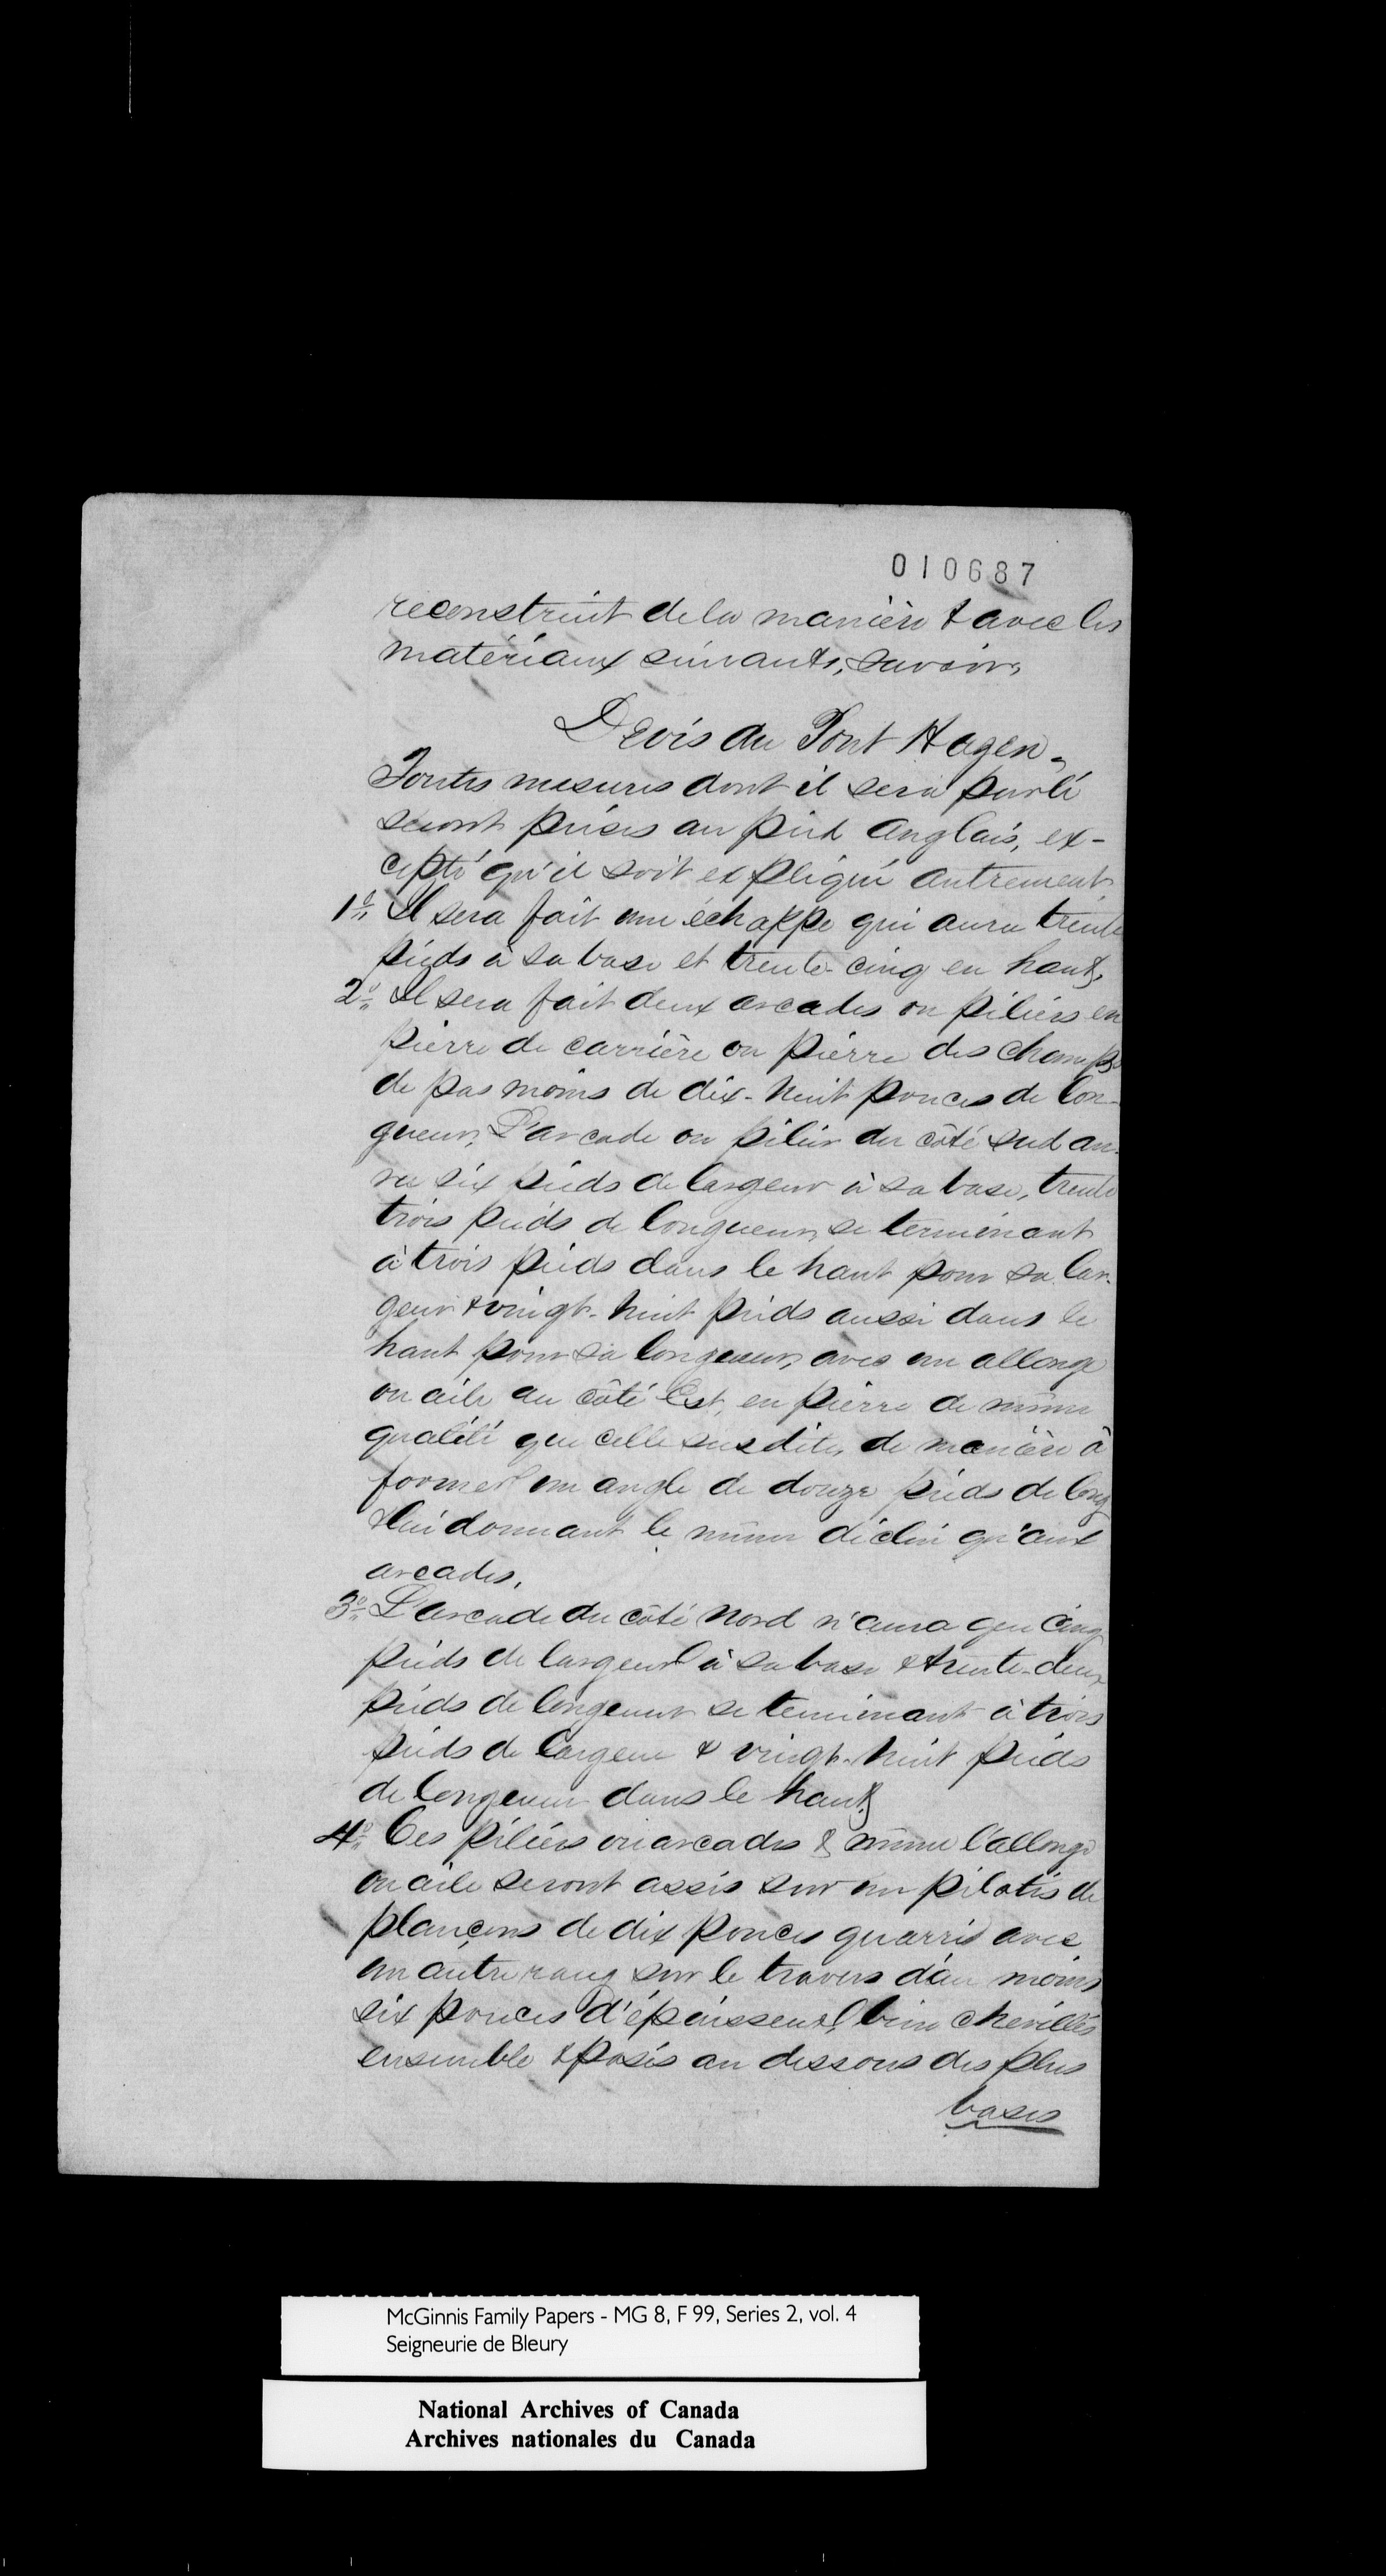 010687
reconstruit de la manière & avec les
matériaux suivants, savoir,
Devis du Pont Hagen.
Toutes mesures dont il sera parlé
seront prises au pied anglais, ex-
cepté qu'il soit expliqué autrement
1o. Il sera fait une échappe qui aura trente
pieds à sa base et trente-cinq en haut,
2o. Il sera fait deux arcades ou piliers en
pierre de carrière ou pierre des champs
de pas moins de dix-huit pouces de lon-
gueur, L'arcade ou pilier du côté sud au-
ra six pieds de largeur à sa base, trente
trois pieds de longueur, se terminant
à trois pieds dans le haut pour sa lar-
geur & vingt-huit pieds aussi dans le
haut pour sa longueur, avec un allonge
ou aile au côté Est, en pierre de même
qualité que celle susdite, de manière à
former un angle de douze pieds de long
& lui donnant le même déclin qu'aux
arcades,
3o. L'arcade du côté Nord n'aura que cinq
pieds de largeur à sa base & trente-deux
pieds de longeuur se terminant à trois
pieds de largeur & vingt-huit pieds
de longeuur dans le haut,
4o. Ces piliers ou arcades & même l'allonge
ou aile seront assis sur un pilotis de
plançons de dix pouces quarris avec
un autre rang sur le travers d'au moins
six pouces d'épaisseur, bien chevillés
ensemble & posés au dessous des plus
basses
McGinnis Family Papers - MG 8, F 99, Series 2, vol. 4
Seigneurie de Bleury
National Archives of Canada
Archives nationales du Canada